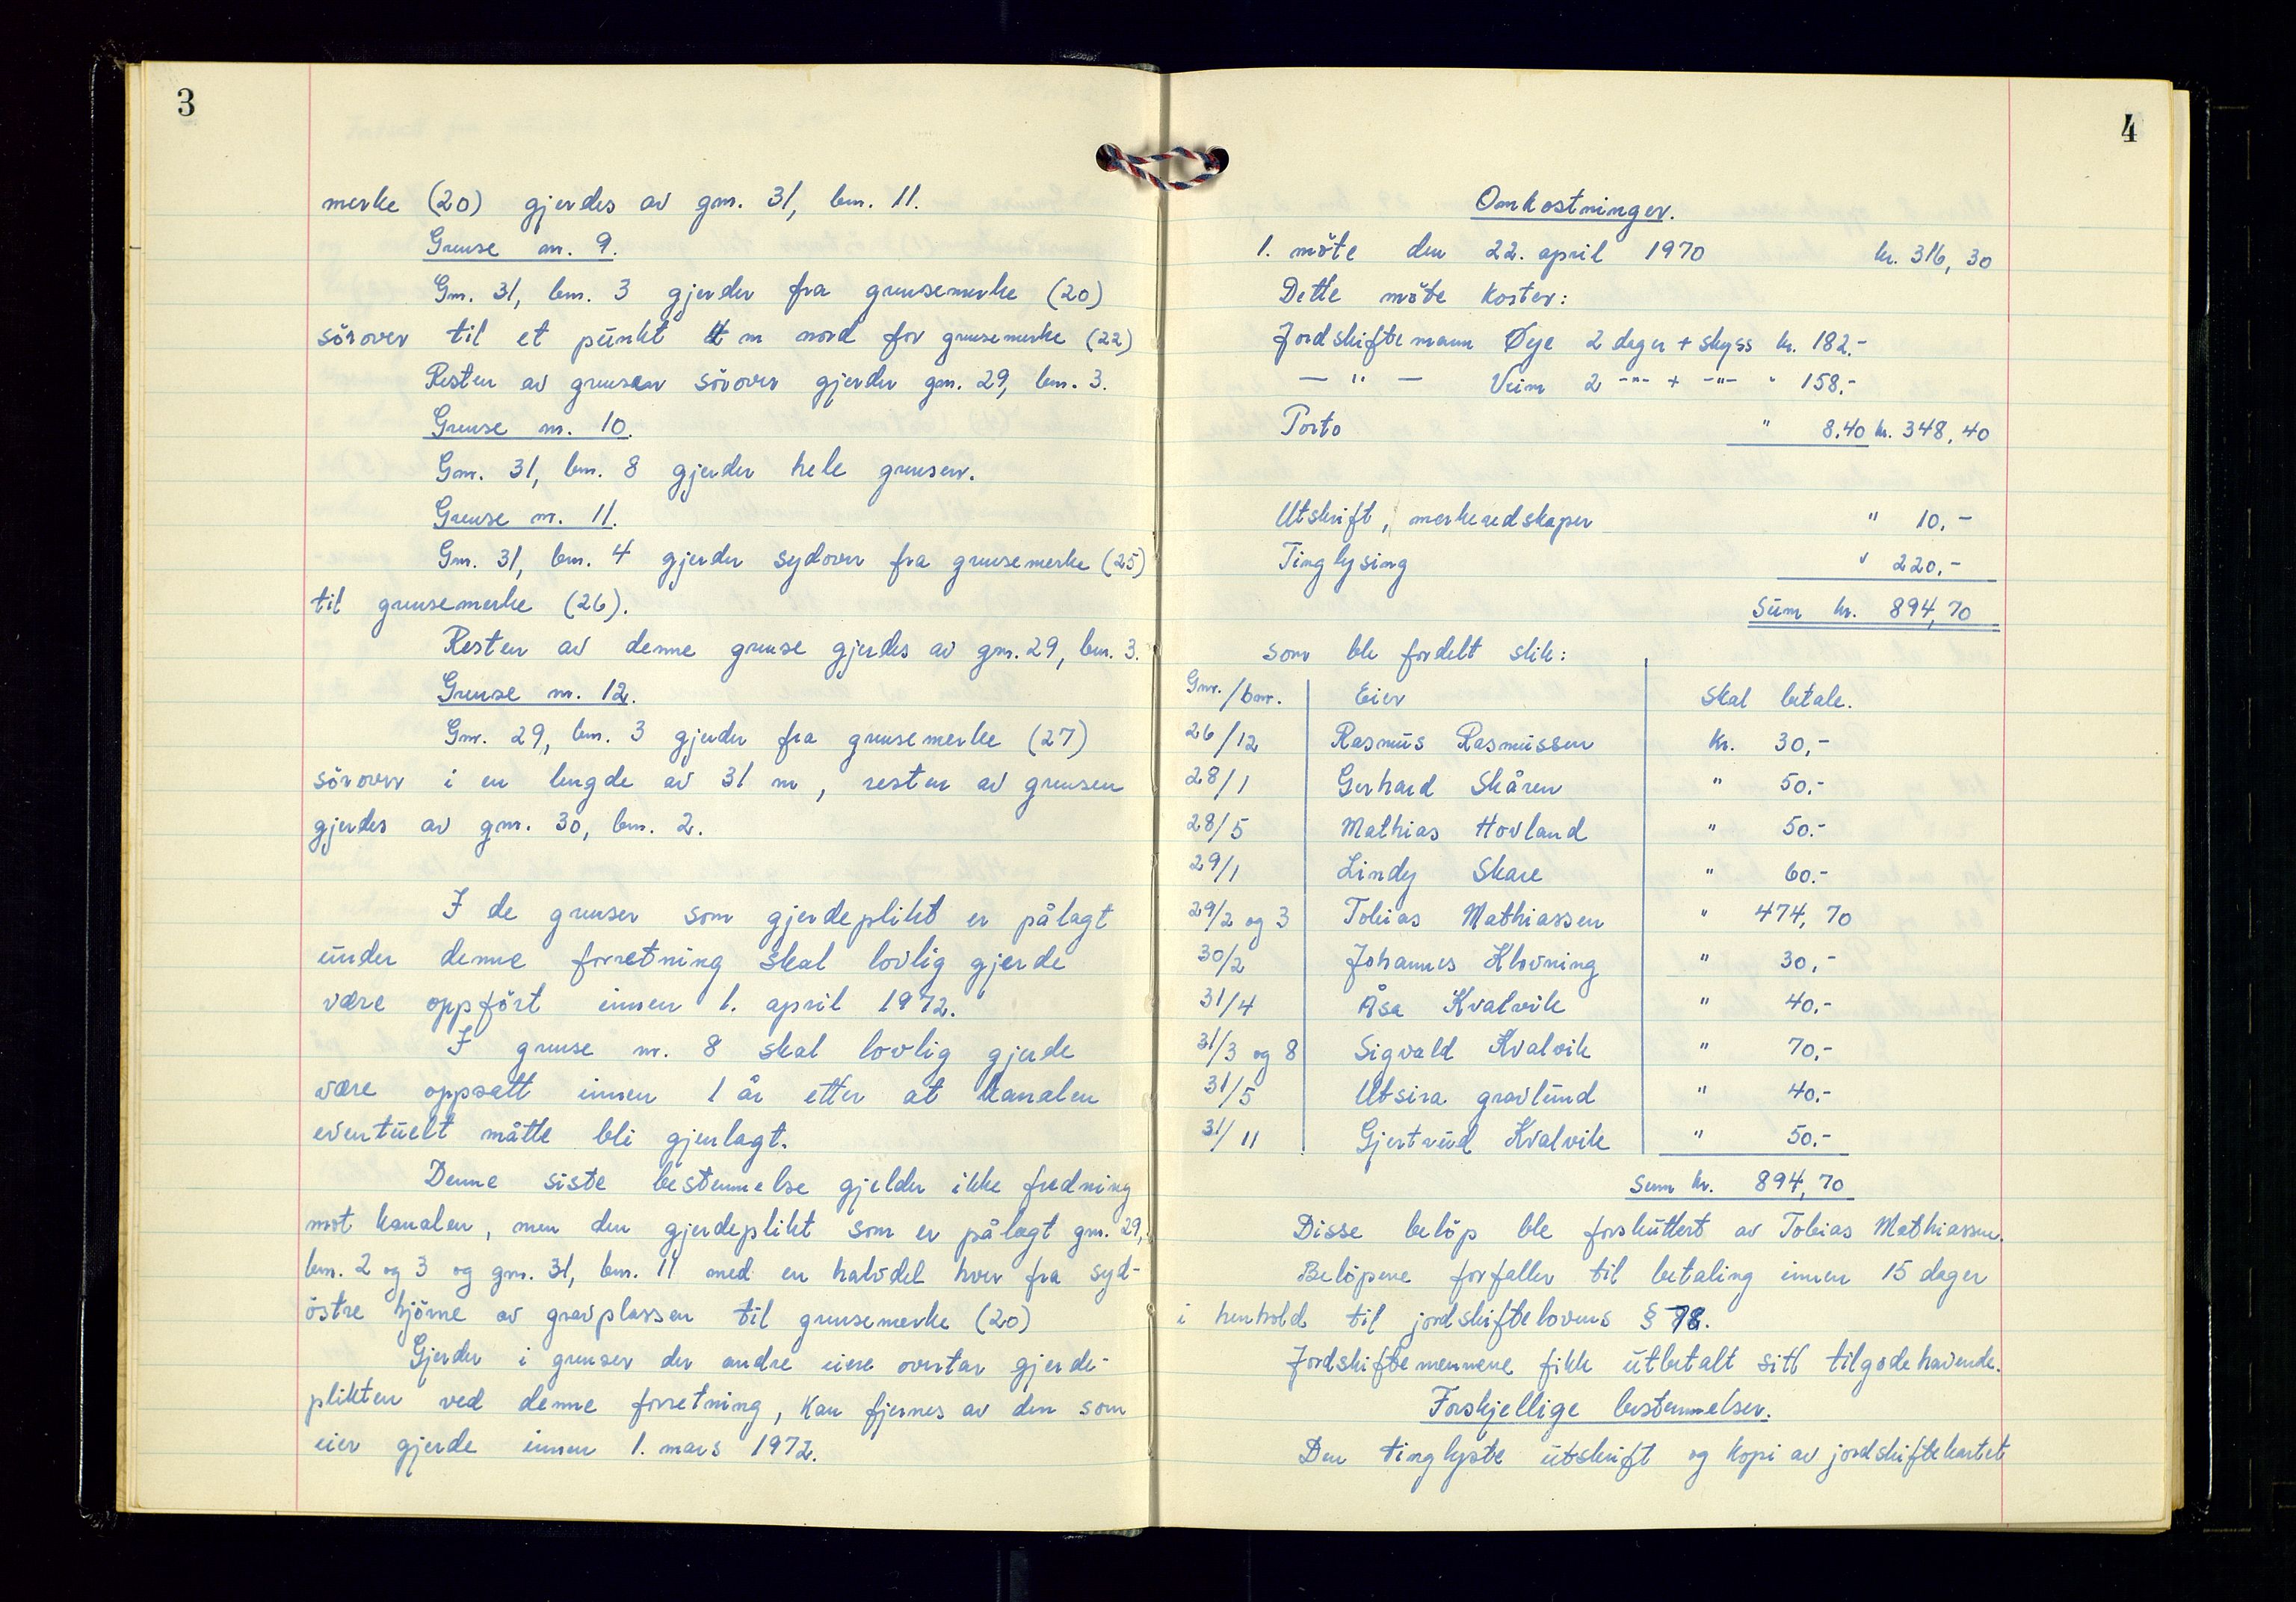 3
merke (20) gjerdes av gnr. 31, bnr. 11.
Grense nr. 9.
Gnr. 31, bnr. 3 gjerder fra grensemerke (20)
sörover til et punkt m nord for grensemerke (22)
Resten av grensen sörover gjerder gnr. 29, bnr. 3.
Grense nr. 10.
Gnr. 31, bnr. 8 gjerder hele grensen.
Grense nr. 11.
Gnr. 31, bnr. 4 gjerder sydover fra grensemerke (25)
til grensemerke (26).
Resten av denne grense gjerdes av gnr. 29, bnr. 3.
Grense nr. 12.
Gnr. 29, bnr. 3 gjerder fra grensemerke (27)
sörover i en lengde av 31 m, resten av grensen
gjerdes av gnr. 30, bnr. 2.
I de grenser som gjerdeplikt er pålagt
under denne forretning skal lovlig gjerde
være oppfört innen 1. april 1972.
I grense nr. 8 skal lovlig gjerde
være oppsatt innen 1 år etter at kanalen
eventuelt måtte bli gjenlagt.
Denne siste bestemmelse gjelder ikke fredning
mot kanalen, men den gjerdeplikt som er pålagt gnr. 29,
bnr. 2 og 3 og gnr. 31, bnr. 11 med en halvdel hver fra syd-
östre hjörne av gravplassen til grensemerke (20)
Gjerder i grenser der andre eiere overtar gjerde-
plikten ved denne forretning, kan fjernes av den som
eier gjerde innen 1. mars 1972.
4
Omkostninger.
1. möte den 22. april 1970 kr. 316,30
Dette möte koster:
Jordskiftemann Øye 2 dager + skyss kr. 182.-
— " — Veim 2 -"- + -"- " 158.-
Porto " 8.40 kr. 348,40
Utskrift, merkeredskaper " 10.-
Tinglysing " 220.-
Sum kr. 894,70
som ble fordelt slik:
Gnr./bnr. Eier Skal betale.
26/12 Rasmus Rasmussen kr. 30,-
28/1 Gerhard Skåren " 50.-
28/5 Mathias Hovland " 50.-
29/1 Lindy Skare " 60.-
29/2 og 3 Tobias Mathiassen " 474,70
30/2 Johannes Klovning " 30,-
31/4 Åsa Kvalvik " 40.-
31/3 og 8 Sigvald Kvalvik " 70,-
31/5 Utsira gravlund " 40.-
31/11 Gjertrud Kvalvik " 50.-
Sum kr. 894,70
Disse belöp ble forskuttert av Tobias Mathiassen.
Belöpene forfaller til betaling innen 15 dager
i henhold til jordskiftelovens §
Jordskiftemennene fikk utbetalt sitt tilgodehavende.
Forskjellige bestemmelser.
Den tinglyste utskrift og kopi av jordskiftekartet